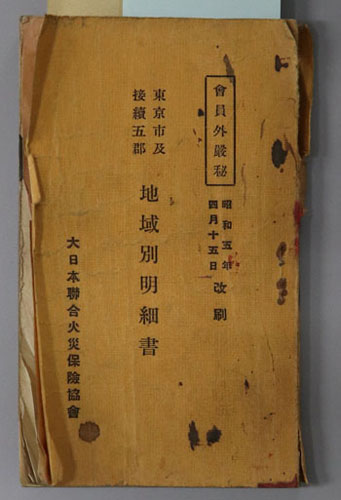 會員外嚴秘
昭和五年
四月十五日
改刷
東京市及
接續五郡
地域別明細書
大日本聯合火災保險協會